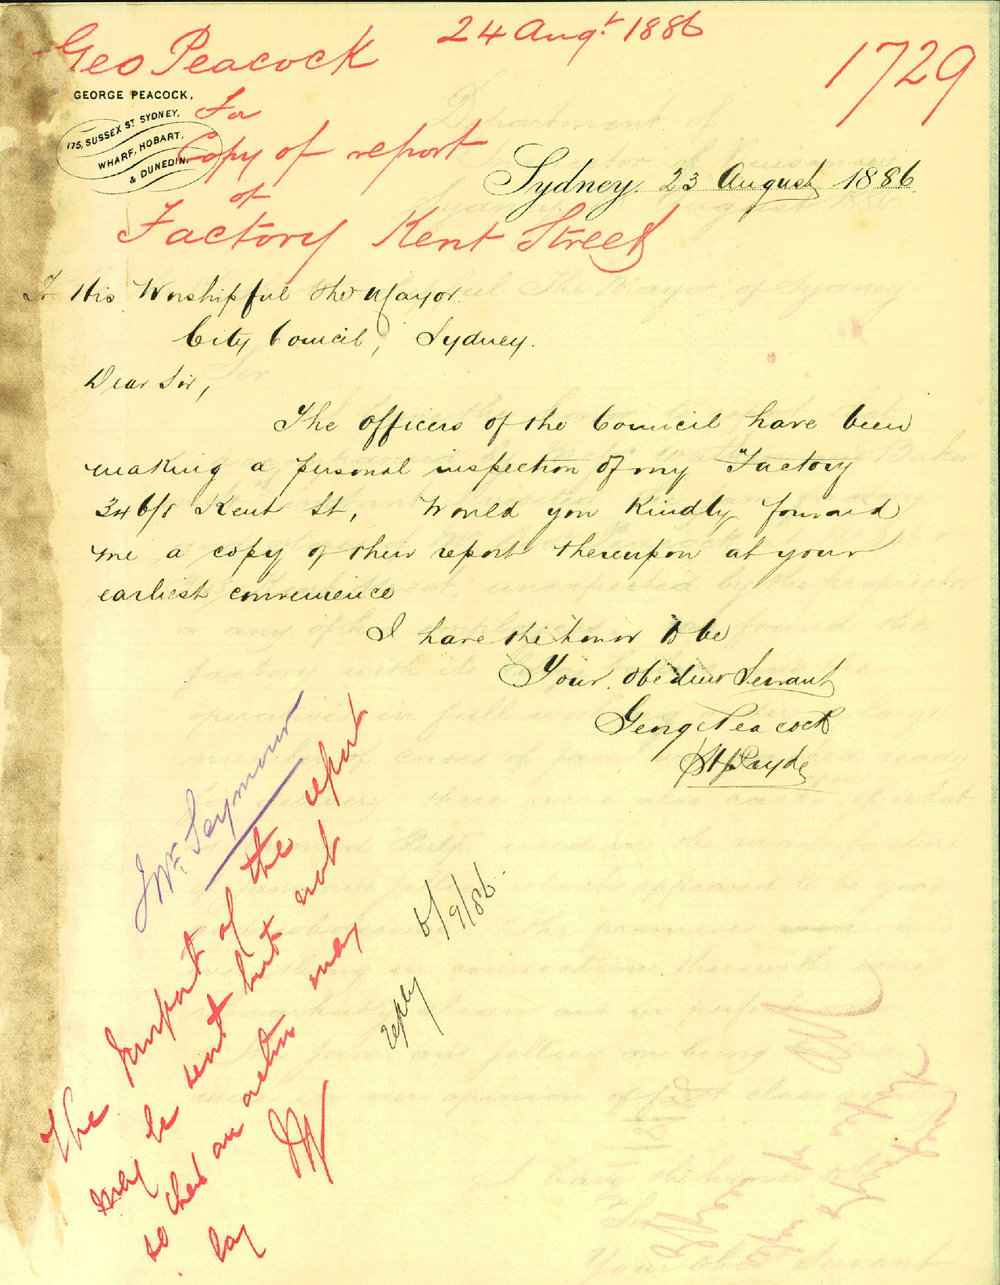 Geo Peacock
24 Augt. 1886
1729
For
Copy of report
of
Factory Kent Street
GEORGE PEACOCK,
175, SUSSEX ST SYDNEY,
WHARF, HOBART,
& DUNEDIN.
Sydney, 23 August 1886
To His Worshipful the Mayor.
City Council, Sydney.
Dear Sir,
The officers of the Council have been
making a personal inspection of my Factory
346/8 Kent St, Would you kindly forward
me a copy of their report thereupon at your
earliest convenience
I have the honor to be
Your obedient Servant
George Peacock
Mr. Seymour
The purport of the report
may be sent but not
so that an action may
lay
reply 6/9/86.